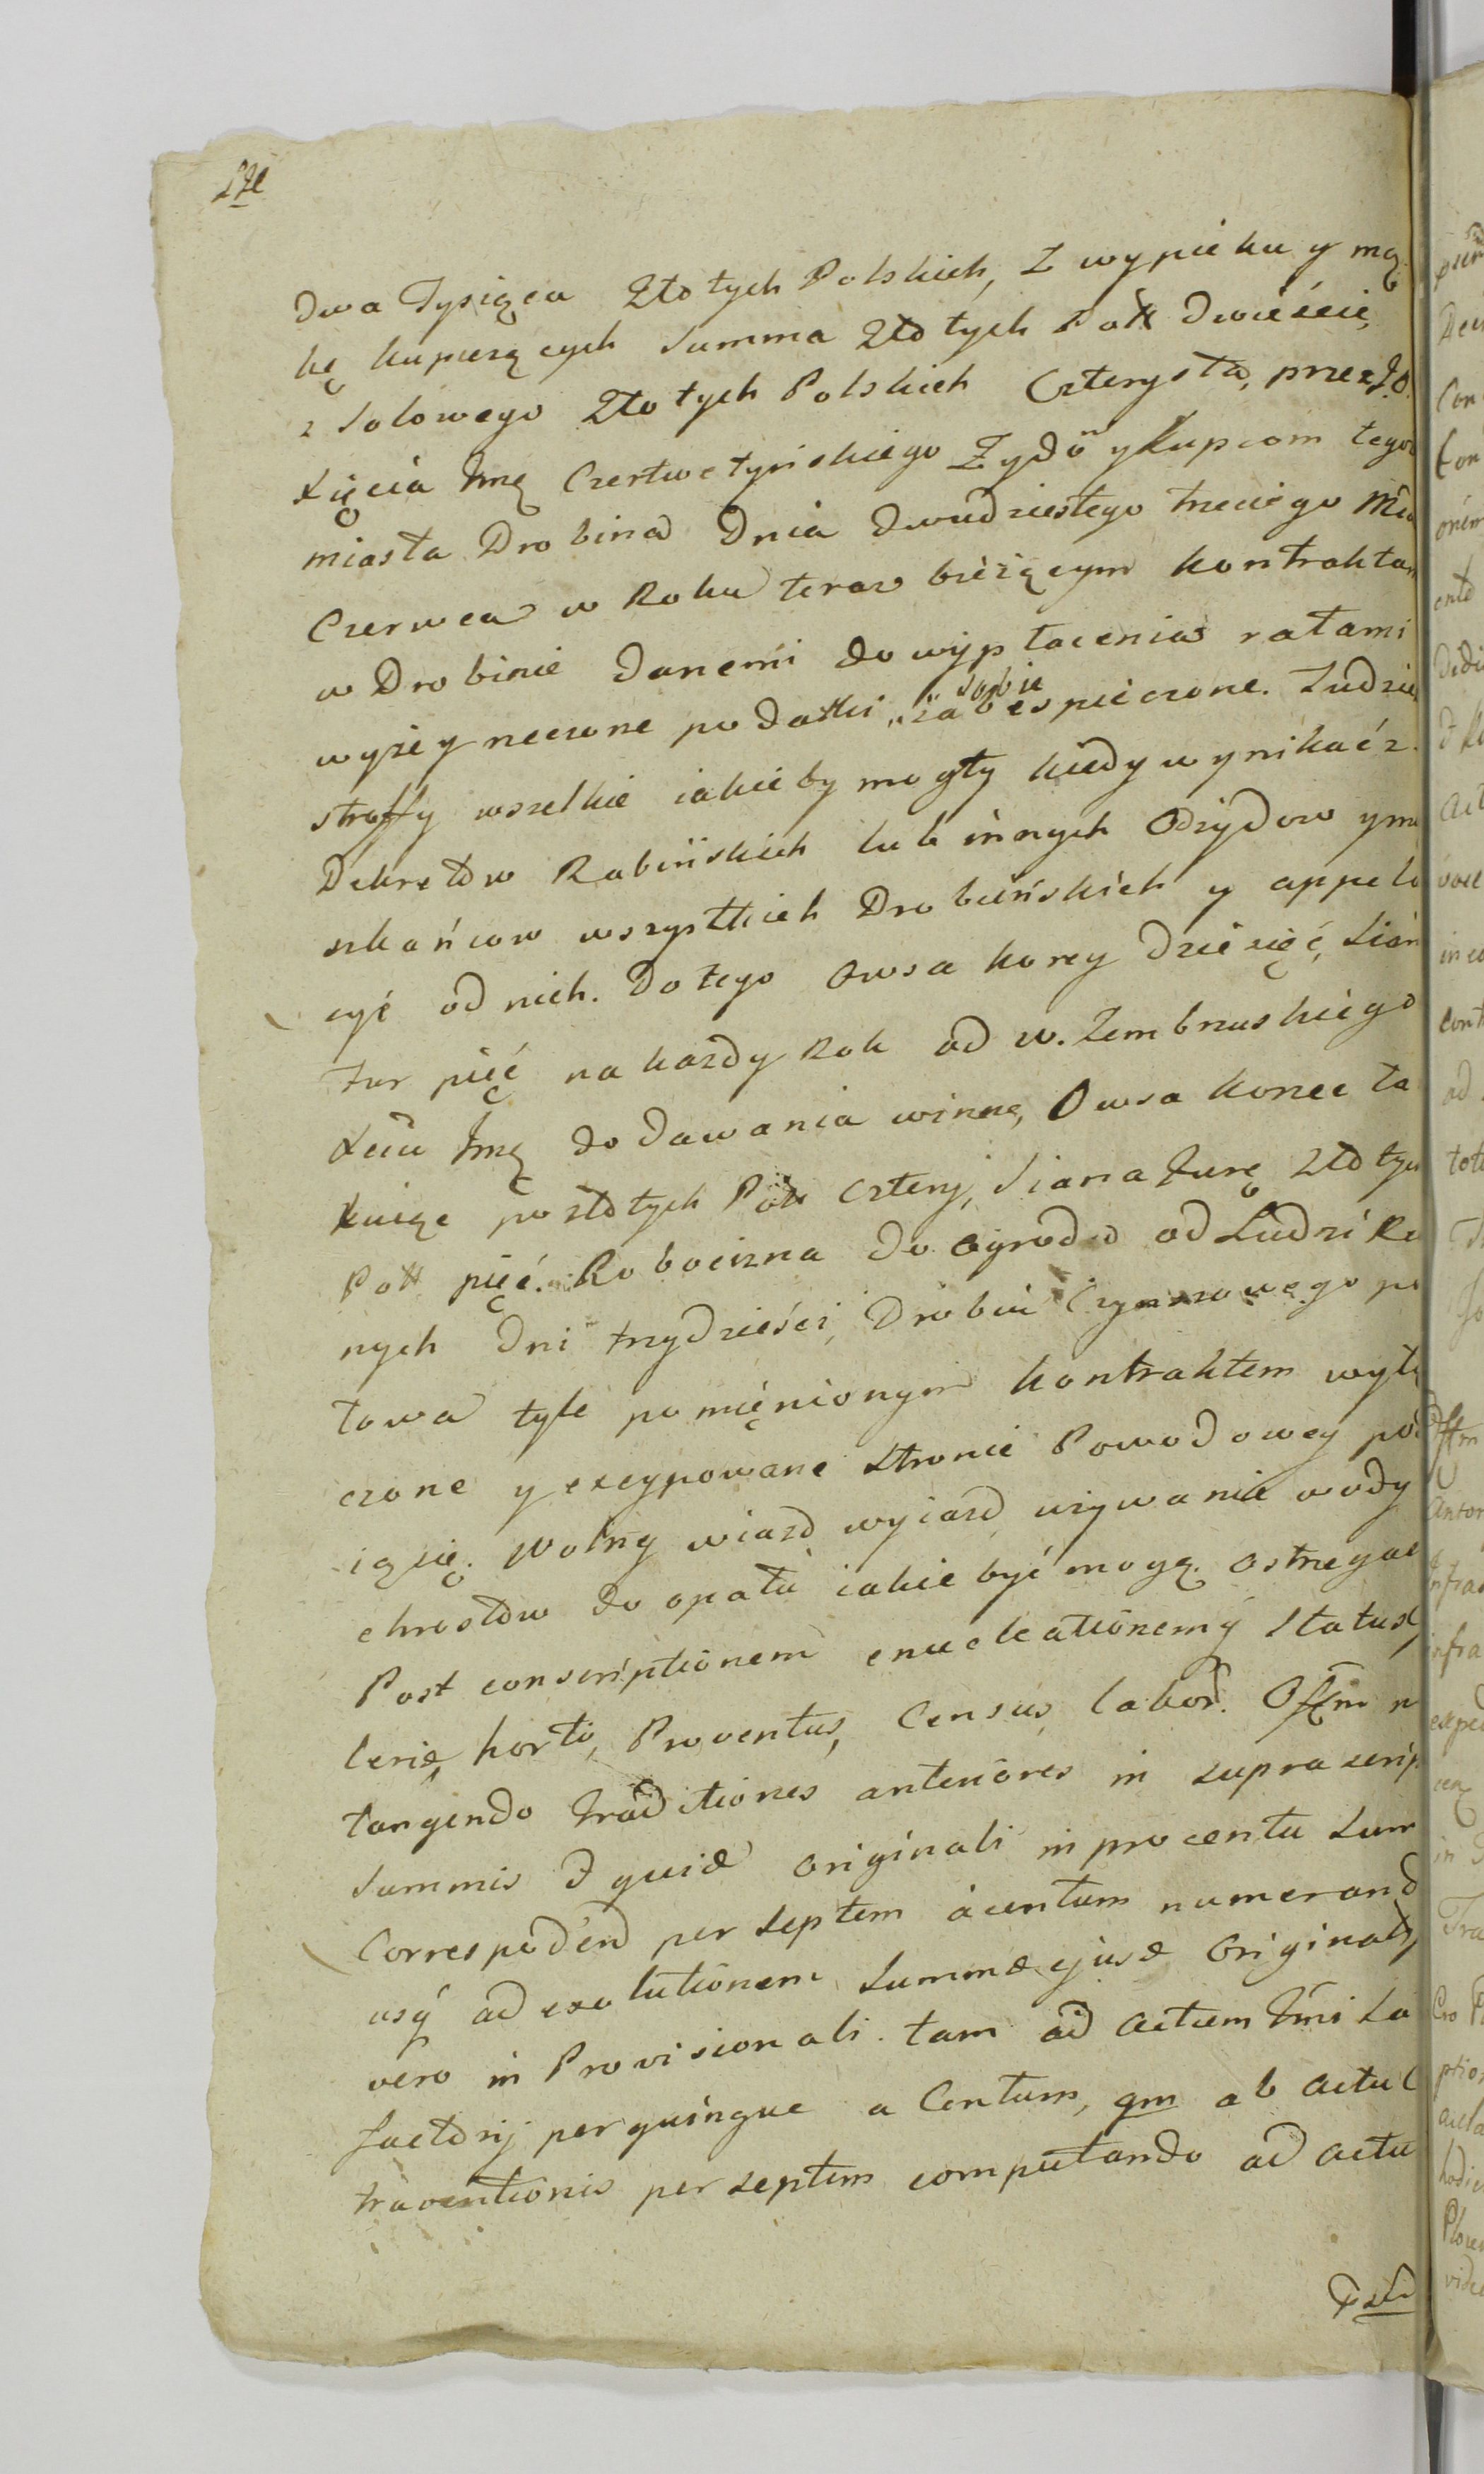 dwa Tysiąca Złotych Polskich, z wypieku y mą
kę kupuiących Summa Złotych Poll dwieście,
z Solowego Złotych Polskich Czterysta, przez JO.
Xięcia Jmę Czertwetyńskiego Żydō y kupcom tego
miasta Drobina Dnia dwudziestego trzeciego Mca
Czerwca w Roku teraz bieżącym kontraktam
w Drobinie danemi do wypłacenia ratami
wyżey rzeczone podatki sobie zabespieczone. Tudzież
straffy wszelkie iakieby mogły kiedy wynikać z
Dekretow Rabińskich lub innych Odżydow y mie
szkańcow wszystkich Drobińskich y appela
cyi od nich. Do tego Owsa korcy dziesięć, Sian
Fur pięć na każdy Rok od W. Zembrzuskiego
Xciu Jmę do dawania winne, Owsa korzec ta
kuiąc po złotych Poll cztery, Siana Furę złoty
Poll pięć. Robocizna do ogrodu od Ludzi Ro
nych dni trzydzieści, Drobiu Czynszowego po
łowa tyle pomięnionym kontraktem wyłą
czone y excypowane Stronie Powodowey po
ią się. Wolny wiazd wyiazd używanie wody
chrostow do opału iakie być mogą. ostrzegae
Post conscriptionem enucleationemq̃ Status
leriæ, horti, Proventus, Census, labor. Offm n
tangendo traditiones anteriores in suprascrip
Summis d quidē originali in procentu Sum
Correspodēnd per Septem a centum numerand
usq̃ ad exolutionem Summæ ejusd Original
vero in Provisionali tam ad actum Jmi Sa
factorij per quinque a Centum, qm ab actu C
traventionis per septem computando ad actu